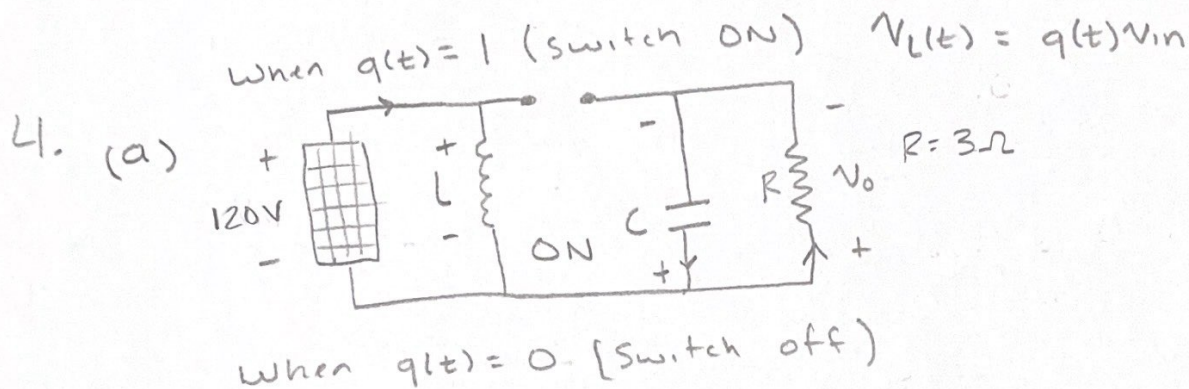 When q(t) = 1 (Switch ON) VL(t) = q(t) Vin
4. (a)
+ 120V -
+ L -
ON
- C +
R
- Vo +
R = 3Ω
When q(t) = 0. (Switch off)